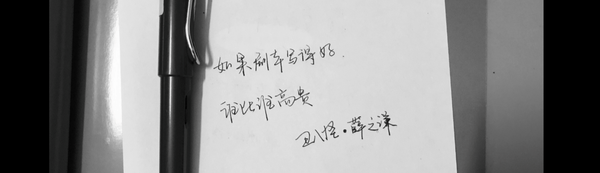 如果剧本写得好
谁比谁高贵
丑八怪·薛之谦